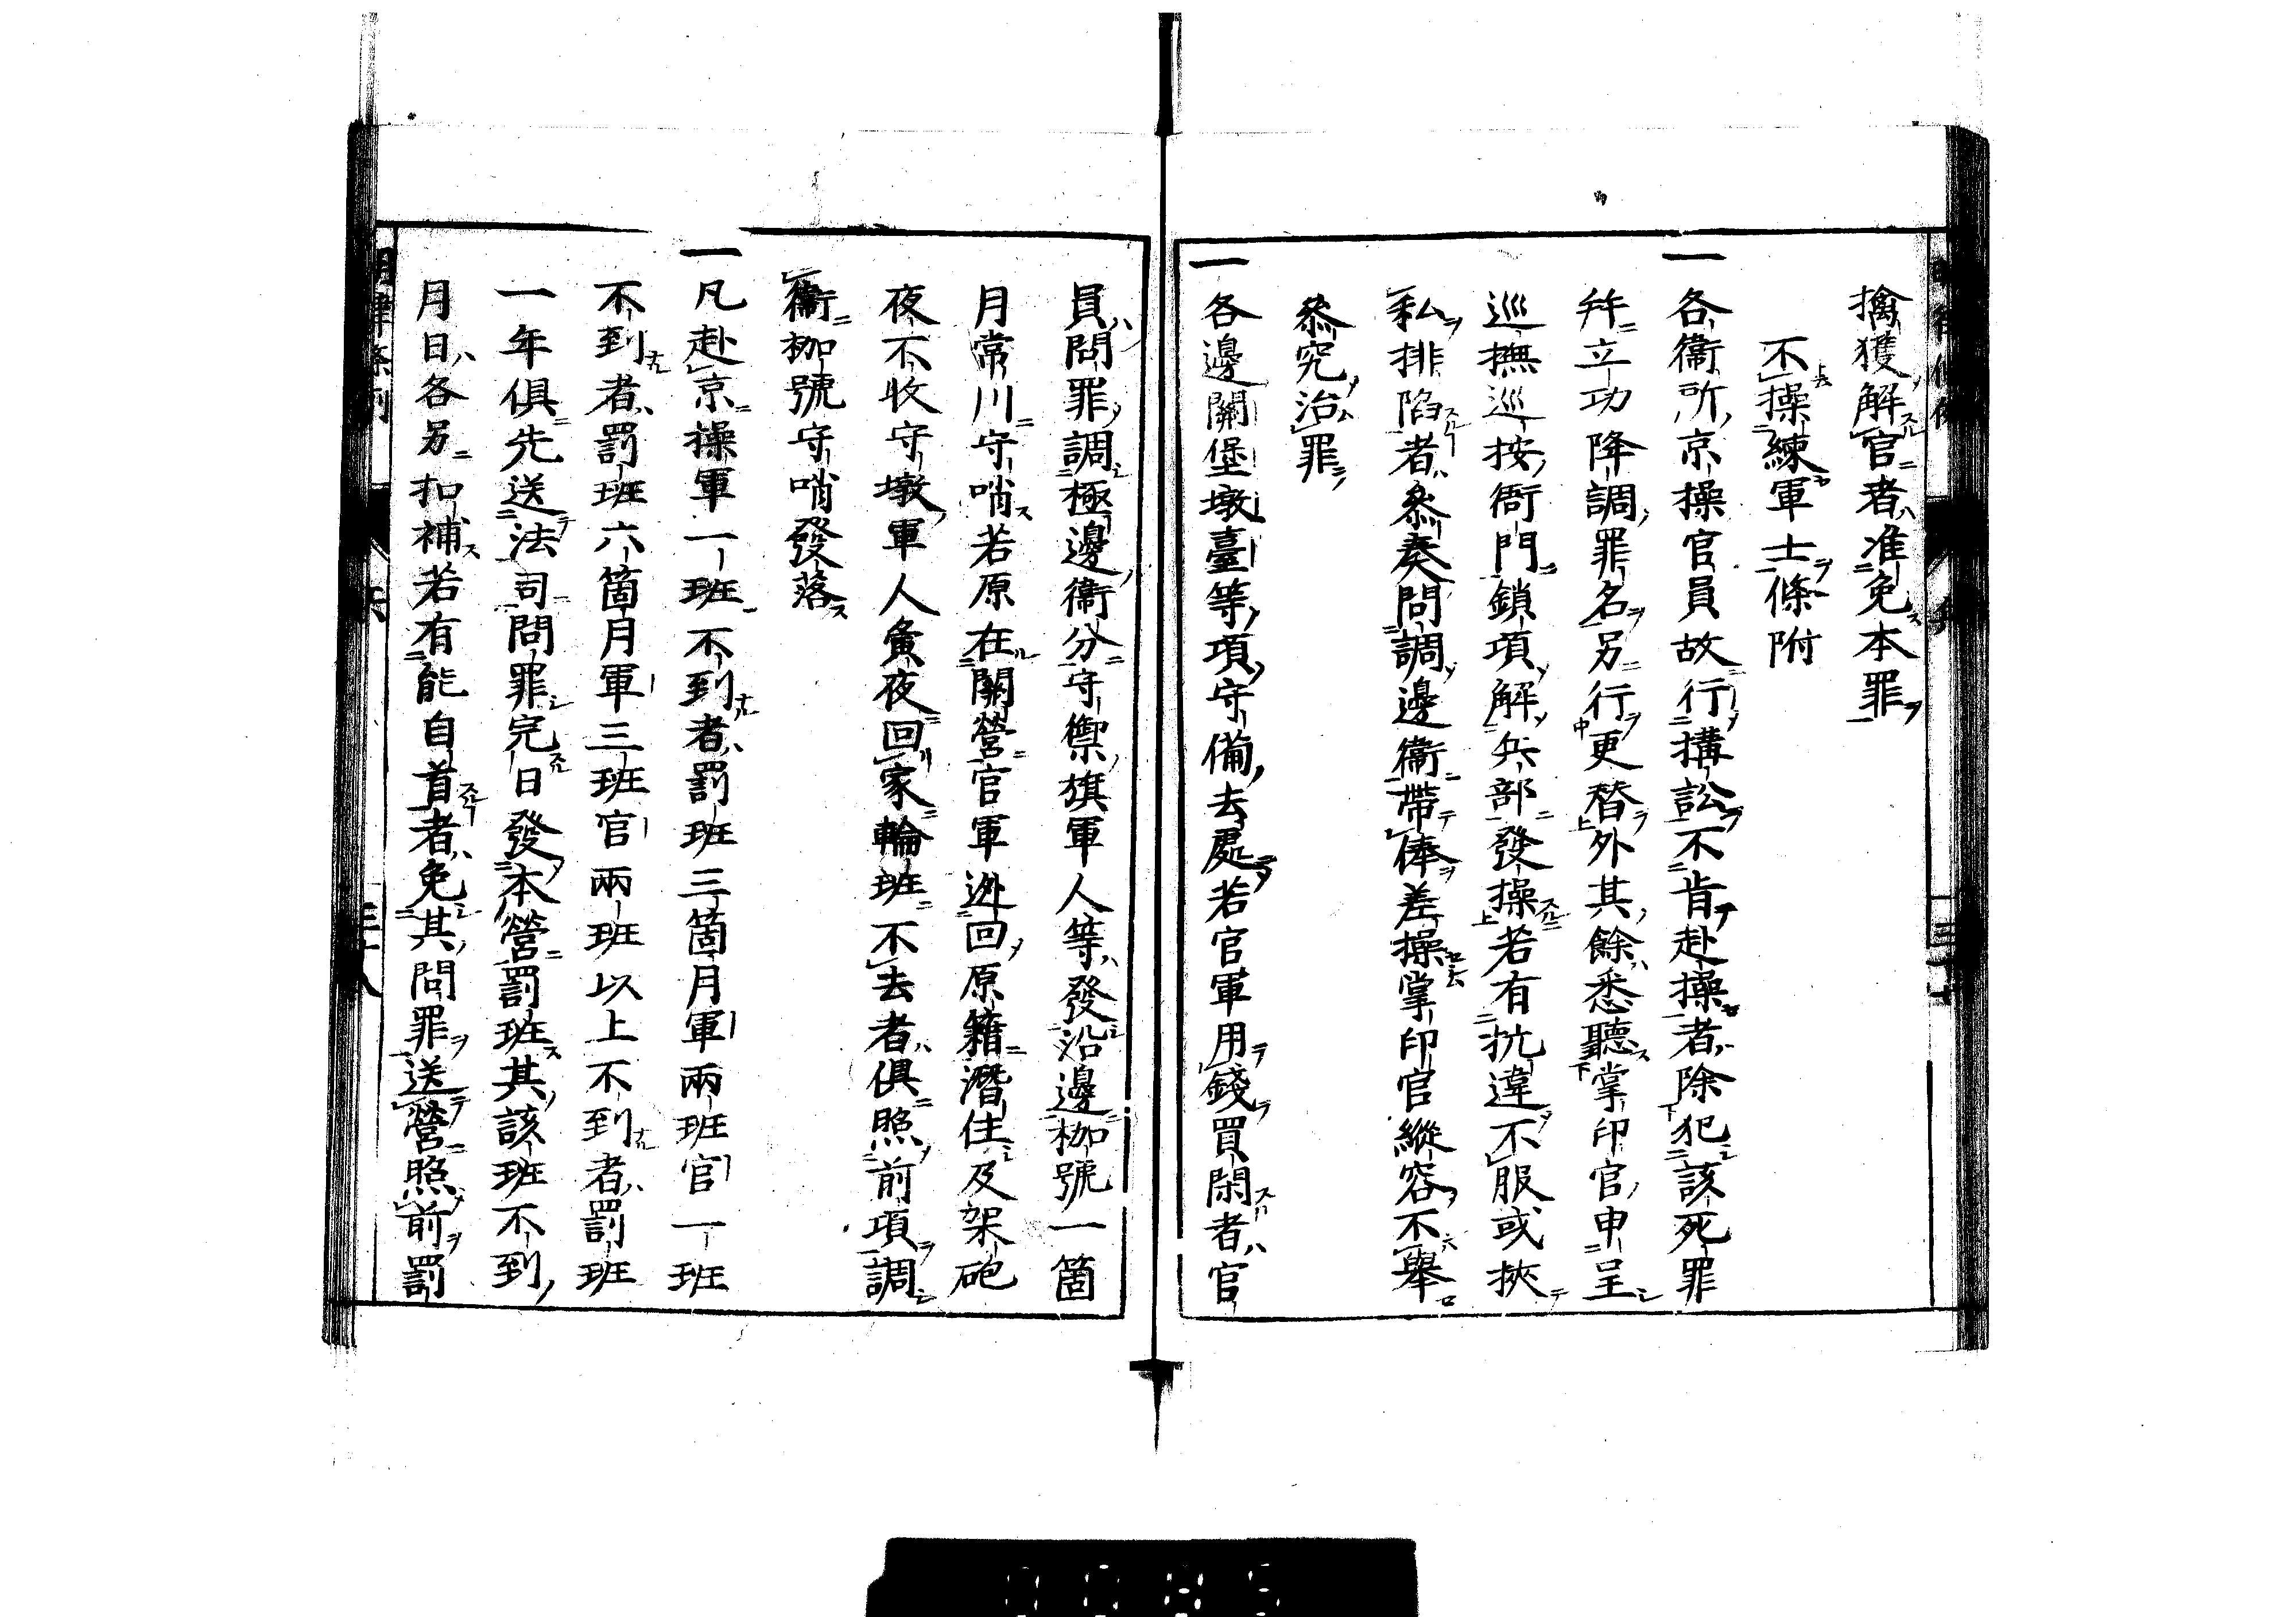 擒獲解官者准免本罪
不操練軍士條附
一各衞所京操官員故行搆訟不肯赴操者除犯該死罪
幷立功降調罪名另行更替外其餘悉聽掌印官申呈
巡撫巡按衙門鎖項解兵部發操若有抗違不服或挾
私排陷者參奏問調邊衞帶俸差操掌印官縱容不舉
參究治罪
一各邊關堡墩臺等項守備去處若官軍用錢買閑者官
員問罪調極邊衞分守禦旗軍人等發沿邊枷號一箇
月常川守哨若原在關營官軍逃回原籍潛住及架砲
夜不收守墩軍人夤夜回家輪班不去者俱照前項調
衞枷號守哨發落
一凡赴京操軍一班不到者罰班三箇月軍兩班官一班
不到者罰班六箇月軍三班官兩班以上不到者罰班
一年俱先送法司問罪完日發本營罰班其該班不到
月日各另扣補若有能自首者免其問罪送營照前罰